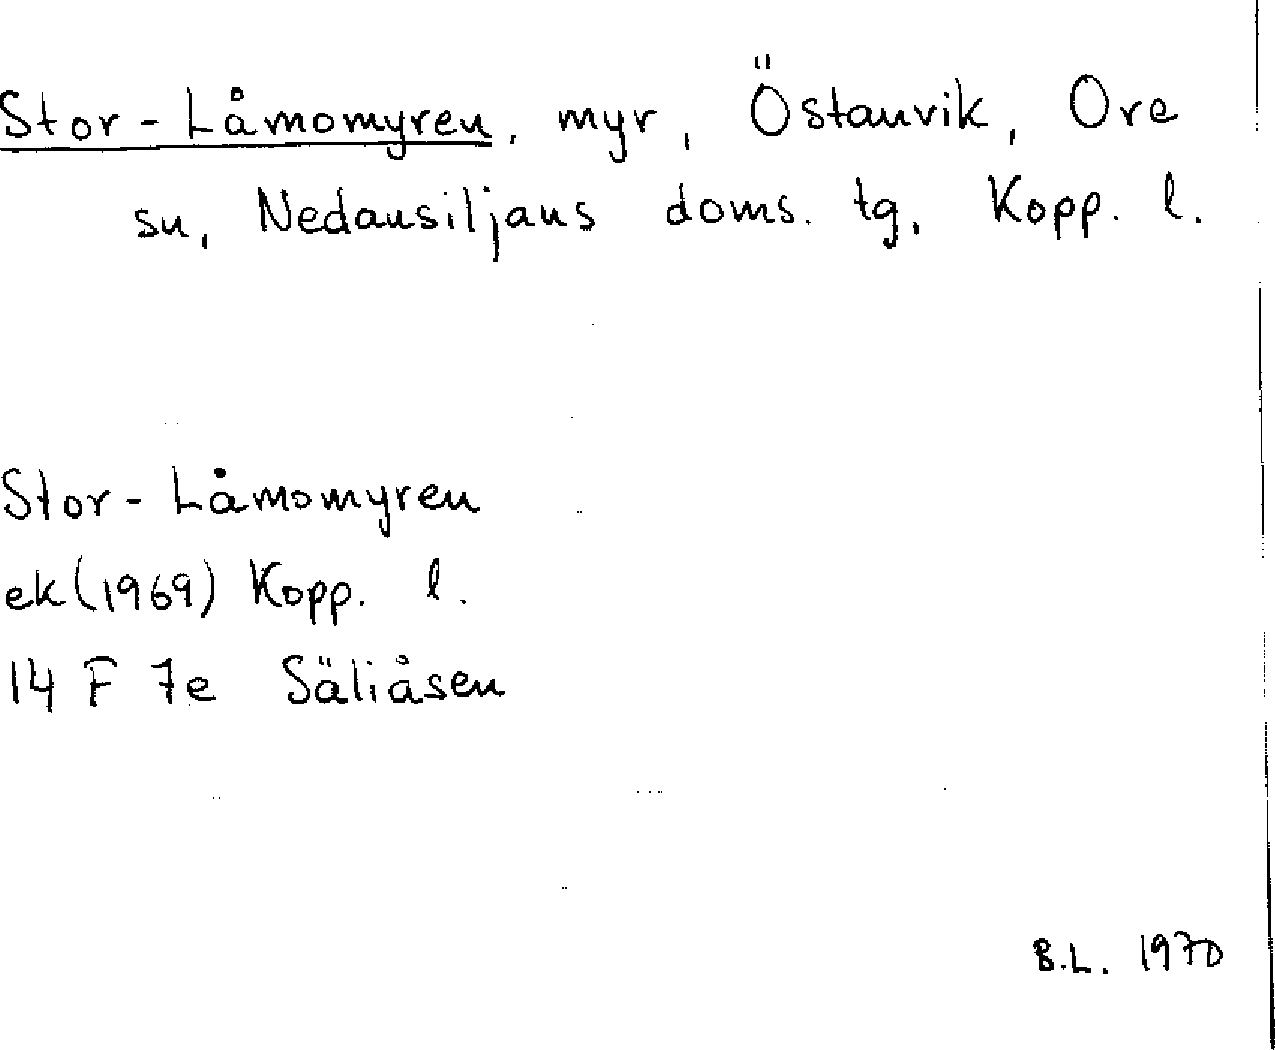 Stor-Låmomyren, myr, Östanvik, Ore
sn, Nedansiljans doms. tg, Kopp. l.
Stor-Låmomyren
ek(1969) Kopp. l.
14 F 7e Säliåsen
B.L. 1970